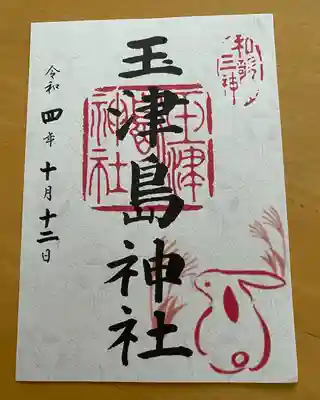 和歌三神
玉津島神社
玉津島神社
令和四年十月十二日